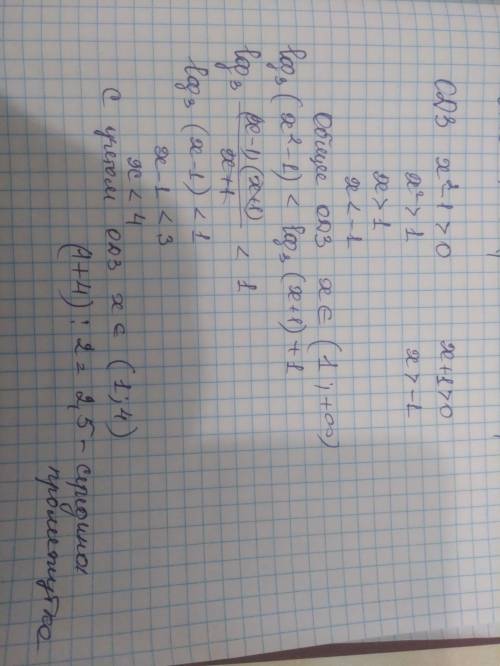 ОДЗ x²-1>0 x+1>0
x²>1 x>-1
x>1
x<-1
Общее ОДЗ x∈(1;+∞)
log₃(x²-1)<log₃(x+1)+1
log₃ (x-1)(x+1)/x+1 < 1
log₃(x-1)<1
x-1<3
x<4
С учетом ОДЗ x∈(1;4)
(1+4):2=2,5 - середина
промежутка